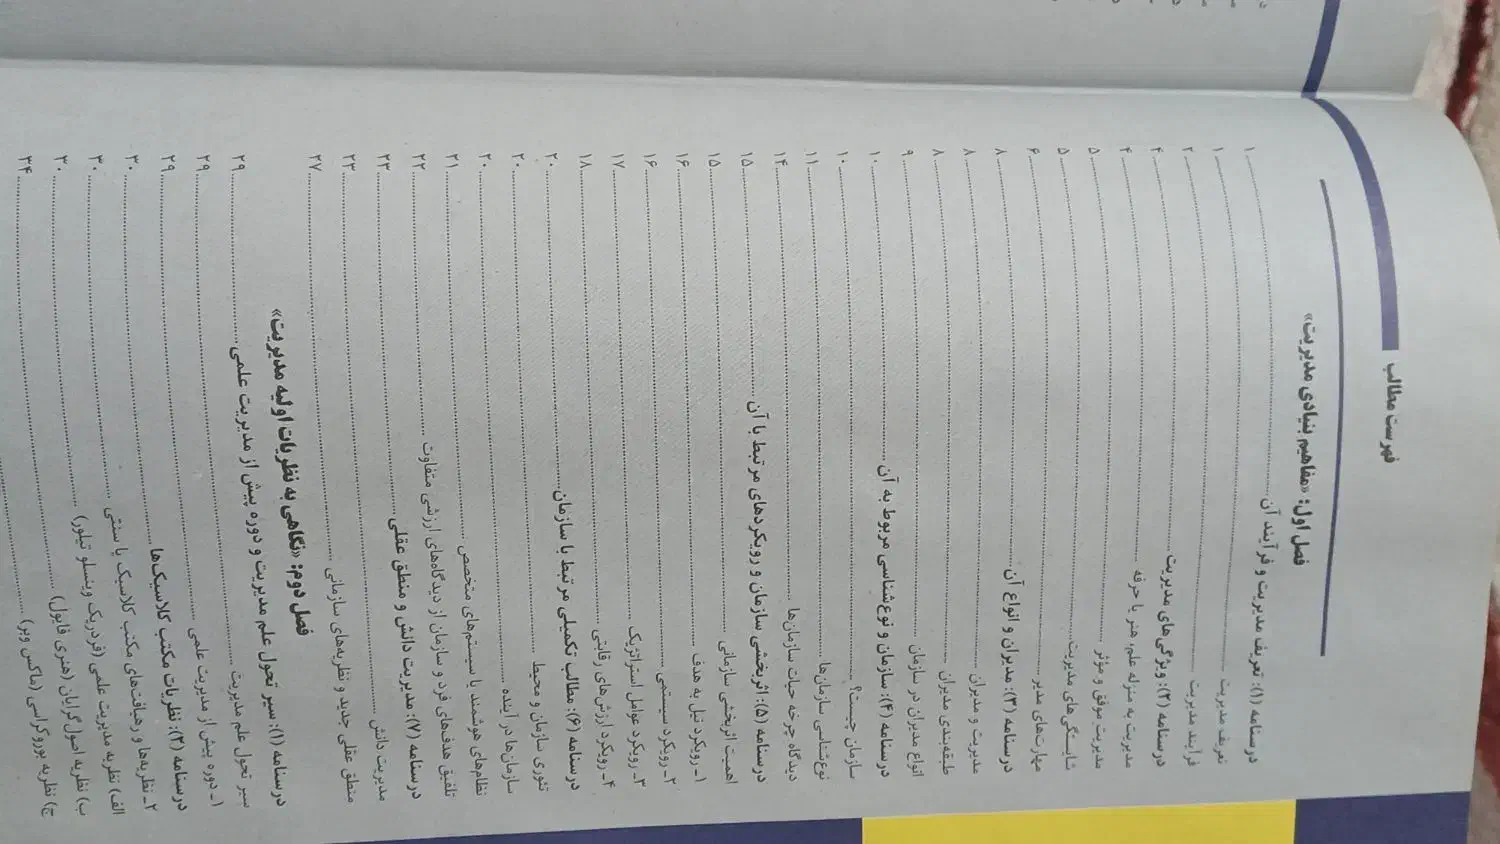 فهرست مطالب
فصل اول: «مفاهیم بنیادی مدیریت»
درسنامه (۱): تعریف مدیریت و فرآیند آن ۱
تعریف مدیریت ۱
فرآیند مدیریت ۲
درسنامه (۲): ویژگی‌های مدیریت ۴
مدیریت به منزله علم، هنر یا حرفه ۴
مدیریت موفق و مؤثر ۵
شایستگی‌های مدیریت ۵
مهارت‌های مدیر ۶
درسنامه (۳): مدیران و انواع آن ۸
مدیریت و مدیران ۸
طبقه‌بندی مدیران ۸
انواع مدیران در سازمان ۹
درسنامه (۴): سازمان و نوع‌شناسی مربوط به آن ۱۰
سازمان چیست؟ ۱۰
نوع‌شناسی سازمان‌ها ۱۱
دیدگاه چرخه حیات سازمان‌ها ۱۴
درسنامه (۵): اثربخشی سازمان و رویکردهای مرتبط با آن ۱۵
اهمیت اثربخشی سازمانی ۱۵
۱ـ رویکرد نیل به هدف ۱۶
۲ـ رویکرد سیستمی ۱۶
۳ـ رویکرد عوامل استراتژیک ۱۷
۴ـ رویکرد ارزش‌های رقابتی ۱۸
درسنامه (۶): مطالب تکمیلی مرتبط با سازمان ۲۰
تئوری سازمان و محیط ۲۰
سازمان‌ها در آینده ۲۰
نظام‌های هوشمند یا سیستم‌های متخصص ۲۱
تلفیق هدف‌های فرد و سازمان از دیدگاه‌های ارزشی متفاوت ۲۲
درسنامه (۷): مدیریت دانش و منطق عقلی ۲۳
مدیریت دانش ۲۳
منطق عقلی جدید و نظریه‌های سازمانی ۲۷
فصل دوم: «نگاهی به نظریات اولیه مدیریت»
درسنامه (۱): سیر تحول علم مدیریت و دوره پیش از مدیریت علمی ۲۹
سیر تحول علم مدیریت ۲۹
۱ـ دوره پیش از مدیریت علمی ۲۹
درسنامه (۲): نظریات مکتب کلاسیک‌ها ۳۰
۲ـ نظریه‌ها و رهیافت‌های مکتب کلاسیک یا سنتی ۳۰
الف) نظریه مدیریت علمی (فردریک وینسلو تیلور) ۳۰
ب) نظریه اصول‌گرایان (هنری فایول)
ج) نظریه بوروکراسی (ماکس وبر) ۳۴